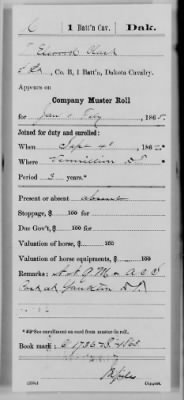 C | 1 Batt'n Cav. | Dak.
Clark
Co. B, 1 Batt'n, Dakota Cavalry.
Appears on
Company Muster Roll
for Jan & Feby, 1865.
Joined for duty and enrolled:
When Sept 4, 1862.
Where Vermillion D.T.
Period 3 years.*
Present or absent absent
Stoppage, $ 100 for
Due Gov't, $ 100 for
Valuation of horse, $ 100
Valuation of horse equipments, $ 100
Remarks:
at Yankton D.T.
*See enrollment on card from muster-in roll.
Book mark:
Copyist.